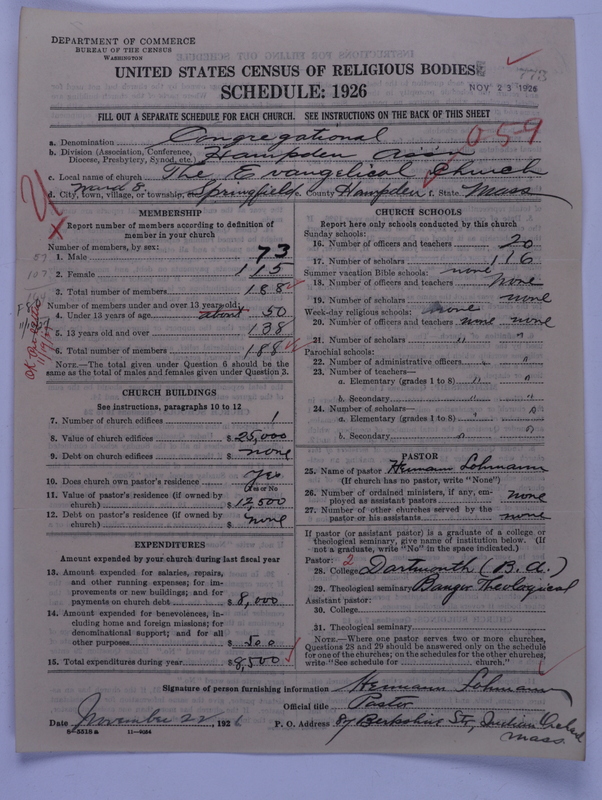 DEPARTMENT OF COMMERCE
BUREAU OF THE CENSUS
WASHINGTON
UNITED STATES CENSUS OF RELIGIOUS BODIES
SCHEDULE: 1926
773
NOV 23 1926
FILL OUT A SEPARATE SCHEDULE FOR EACH CHURCH. SEE INSTRUCTIONS ON THE BACK OF THIS SHEET
a. Denomination Congregational
059
b. Division (Association, Conference, Diocese, Presbytery, Synod, etc.) Hampden Ass'n
c. Local name of church The Evangelical Church
Ward 8.
d. City, town, village, or township, etc. Springfield e. County Hampden f. State Mass
MEMBERSHIP
Report number of members according to definition of
member in your church
Number of members, by sex:
1. Male 73
2. Female 115
3. Total number of members 188
Number of members under and over 13 years old:
4. Under 13 years of age about 50
5. 13 years old and over 138
6. Total number of members 188
NOTE.—The total given under Question 6 should be
same as the total of males and females given under Question 3.
CHURCH BUILDINGS
See instructions, paragraphs 10 to 12
7. Number of church edifices 1
8. Value of church edifices $ 25,000
9. Debt on church edifices $ none
10. Does church own pastor's residence Yes
(Yes or No
11. Value of pastor's residence (if owned by
church) $ 12,500
12. Debt on pastor's residence (if owned by
church) $ none
EXPENDITURES
Amount expended by your church during last fiscal year
13. Amount expended for salaries, repairs,
and other running expenses; for im-
provements or new buildings; and for
payments on church debt $ 8,000
14. Amount expended for benevolences, in-
cluding home and foreign missions; for
denominational support; and for all
other purposes $ 500
15. Total expenditures during year $ 8,500
CHURCH SCHOOLS
Report here only schools conducted by this church
Sunday schools:
16. Number of officers and teachers 20
17. Number of scholars 116
Summer vacation Bible schools: none
18. Number of officers and teachers none
19. Number of scholars none
Week-day religious schools: none
20. Number of officers and teachers none none
21. Number of scholars " "
Parochial schools:
22. Number of administrative officers " "
23. Number of teachers—
a. Elementary (grades 1 to 8) " "
b. Secondary " "
24. Number of scholars—
a. Elementary (grades 1 to 8) " "
b. Secondary " "
PASTOR
25. Name of pastor Hermann Lohmann
(If church has no pastor, write "None")
26. Number of ordained ministers, if any, em-
ployed as assistant pastors none
27. Number of other churches served by the
pastor or his assistants none
If pastor (or assistant pastor) is a graduate of a college or
theological seminary, give name of institution below. (If
not a graduate, write "No" in the space indicated.)
Pastor: 2
28. College Dartmouth (B.A.)
29. Theological seminary Bangor Theological
Assistant pastor:
30. College
31. Theological seminary
NOTE.—Where one pastor serves two or more churches,
Questions 28 and 29 should be answered only on the schedule
for one of the churches; on the schedules for the other churches,
write "See schedule for church."
Signature of person furnishing information Hermann Lohmann
Official title Pastor
Date November 22, 1926
P. O. Address 87 Berkshire Str, Indian Orchard
Mass.
8-5518 a 11-9084